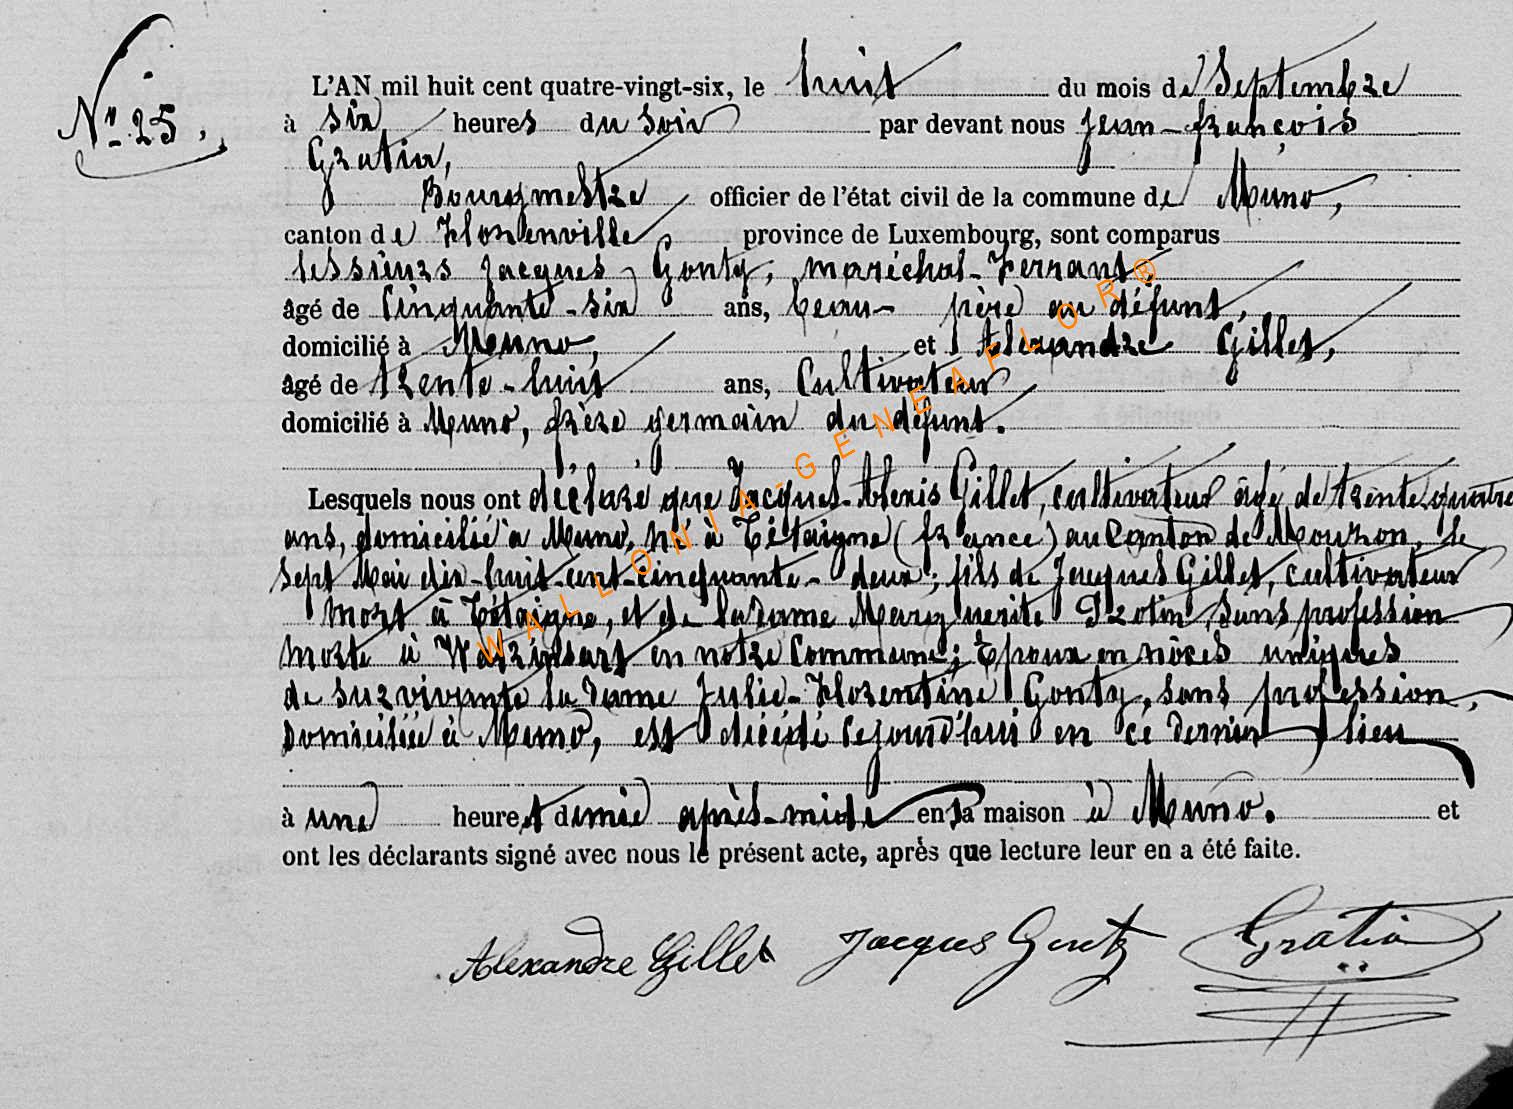 Nº 25.
L'AN mil huit cent quatre-vingt-six, le huit du mois de Septembre
à six heures du soir par devant nous Jean-françois
Gratia,
Bourgmestre officier de l'état civil de la commune de Muno,
canton de Florenville, province de Luxembourg, sont comparus
les sieurs Jacques Gonty, maréchal-Ferrant,
âgé de Cinquante-six ans, beau-père au défunt,
domicilié à Muno, et Alexandre Gillet,
âgé de trente-huit ans, Cultivateur
domicilié à Muno, frère germain du défunt.
Lesquels nous ont déclaré que Jacques-Alexis Gillet, cultivateur âgé de trente-quatre
ans, domicilié à Muno, né à Tétaigne (france) au Canton de Mouzon, le
sept Mai dix-huit-cent-cinquante-deux; fils de Jacques Gillet, cultivateur
mort à Tétaigne, et de la dame Marguerite sans profession
morte à Watrinsart en notre Commune; Epoux en nôces uniques
de survivante la dame Julie-Florentine Gonty, sans profession,
domiciliée à Muno, est décédé cejourd'hui en ce dernier lieu
à une heure et demie après-midi en sa maison à Muno. et
ont les déclarants signé avec nous le présent acte, après que lecture leur en a été faite.
Alexandre Gillet Jacques Gratia
WALLONIA-GENEAFLOR®